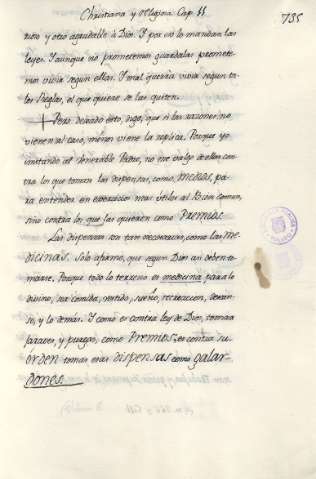 Christiana y Religiosa Cap. 11
735
risto y otro agradable à Dios. Y por esò lo mandan las
leyes. Y aunque no prometemos guardalas promete-
mos vivir segun ellas. Y mal querrà vivir segun ta-
les Reglas, el que quiere se las quiten.
Pero dexado esto, digo, que si las razones no
vienen al caso, menos viene la replica. Porque yo
imitando al Venerable Padre, no me valgo de ellas con-
tra los que toman las dispensas, como, medios, pa-
ra entender en exercicios mas utiles al Bien comun,
sino contra los que las quieren como Premios.
Las dispensas son tan necessarias, como las Me-
dicinas. Solo afirmo, que segun Dios assi deben to-
marse. Porque todo lo terreno es medicina para lo
divino, sea comida, vestido, sueño, recreacion, descan-
so, y lo demàs. Y como es contra ley de Dios, tomar
jaraves, y purgas, como Premios, es contra su
orden tomar esas dispensas como galar-
dones.